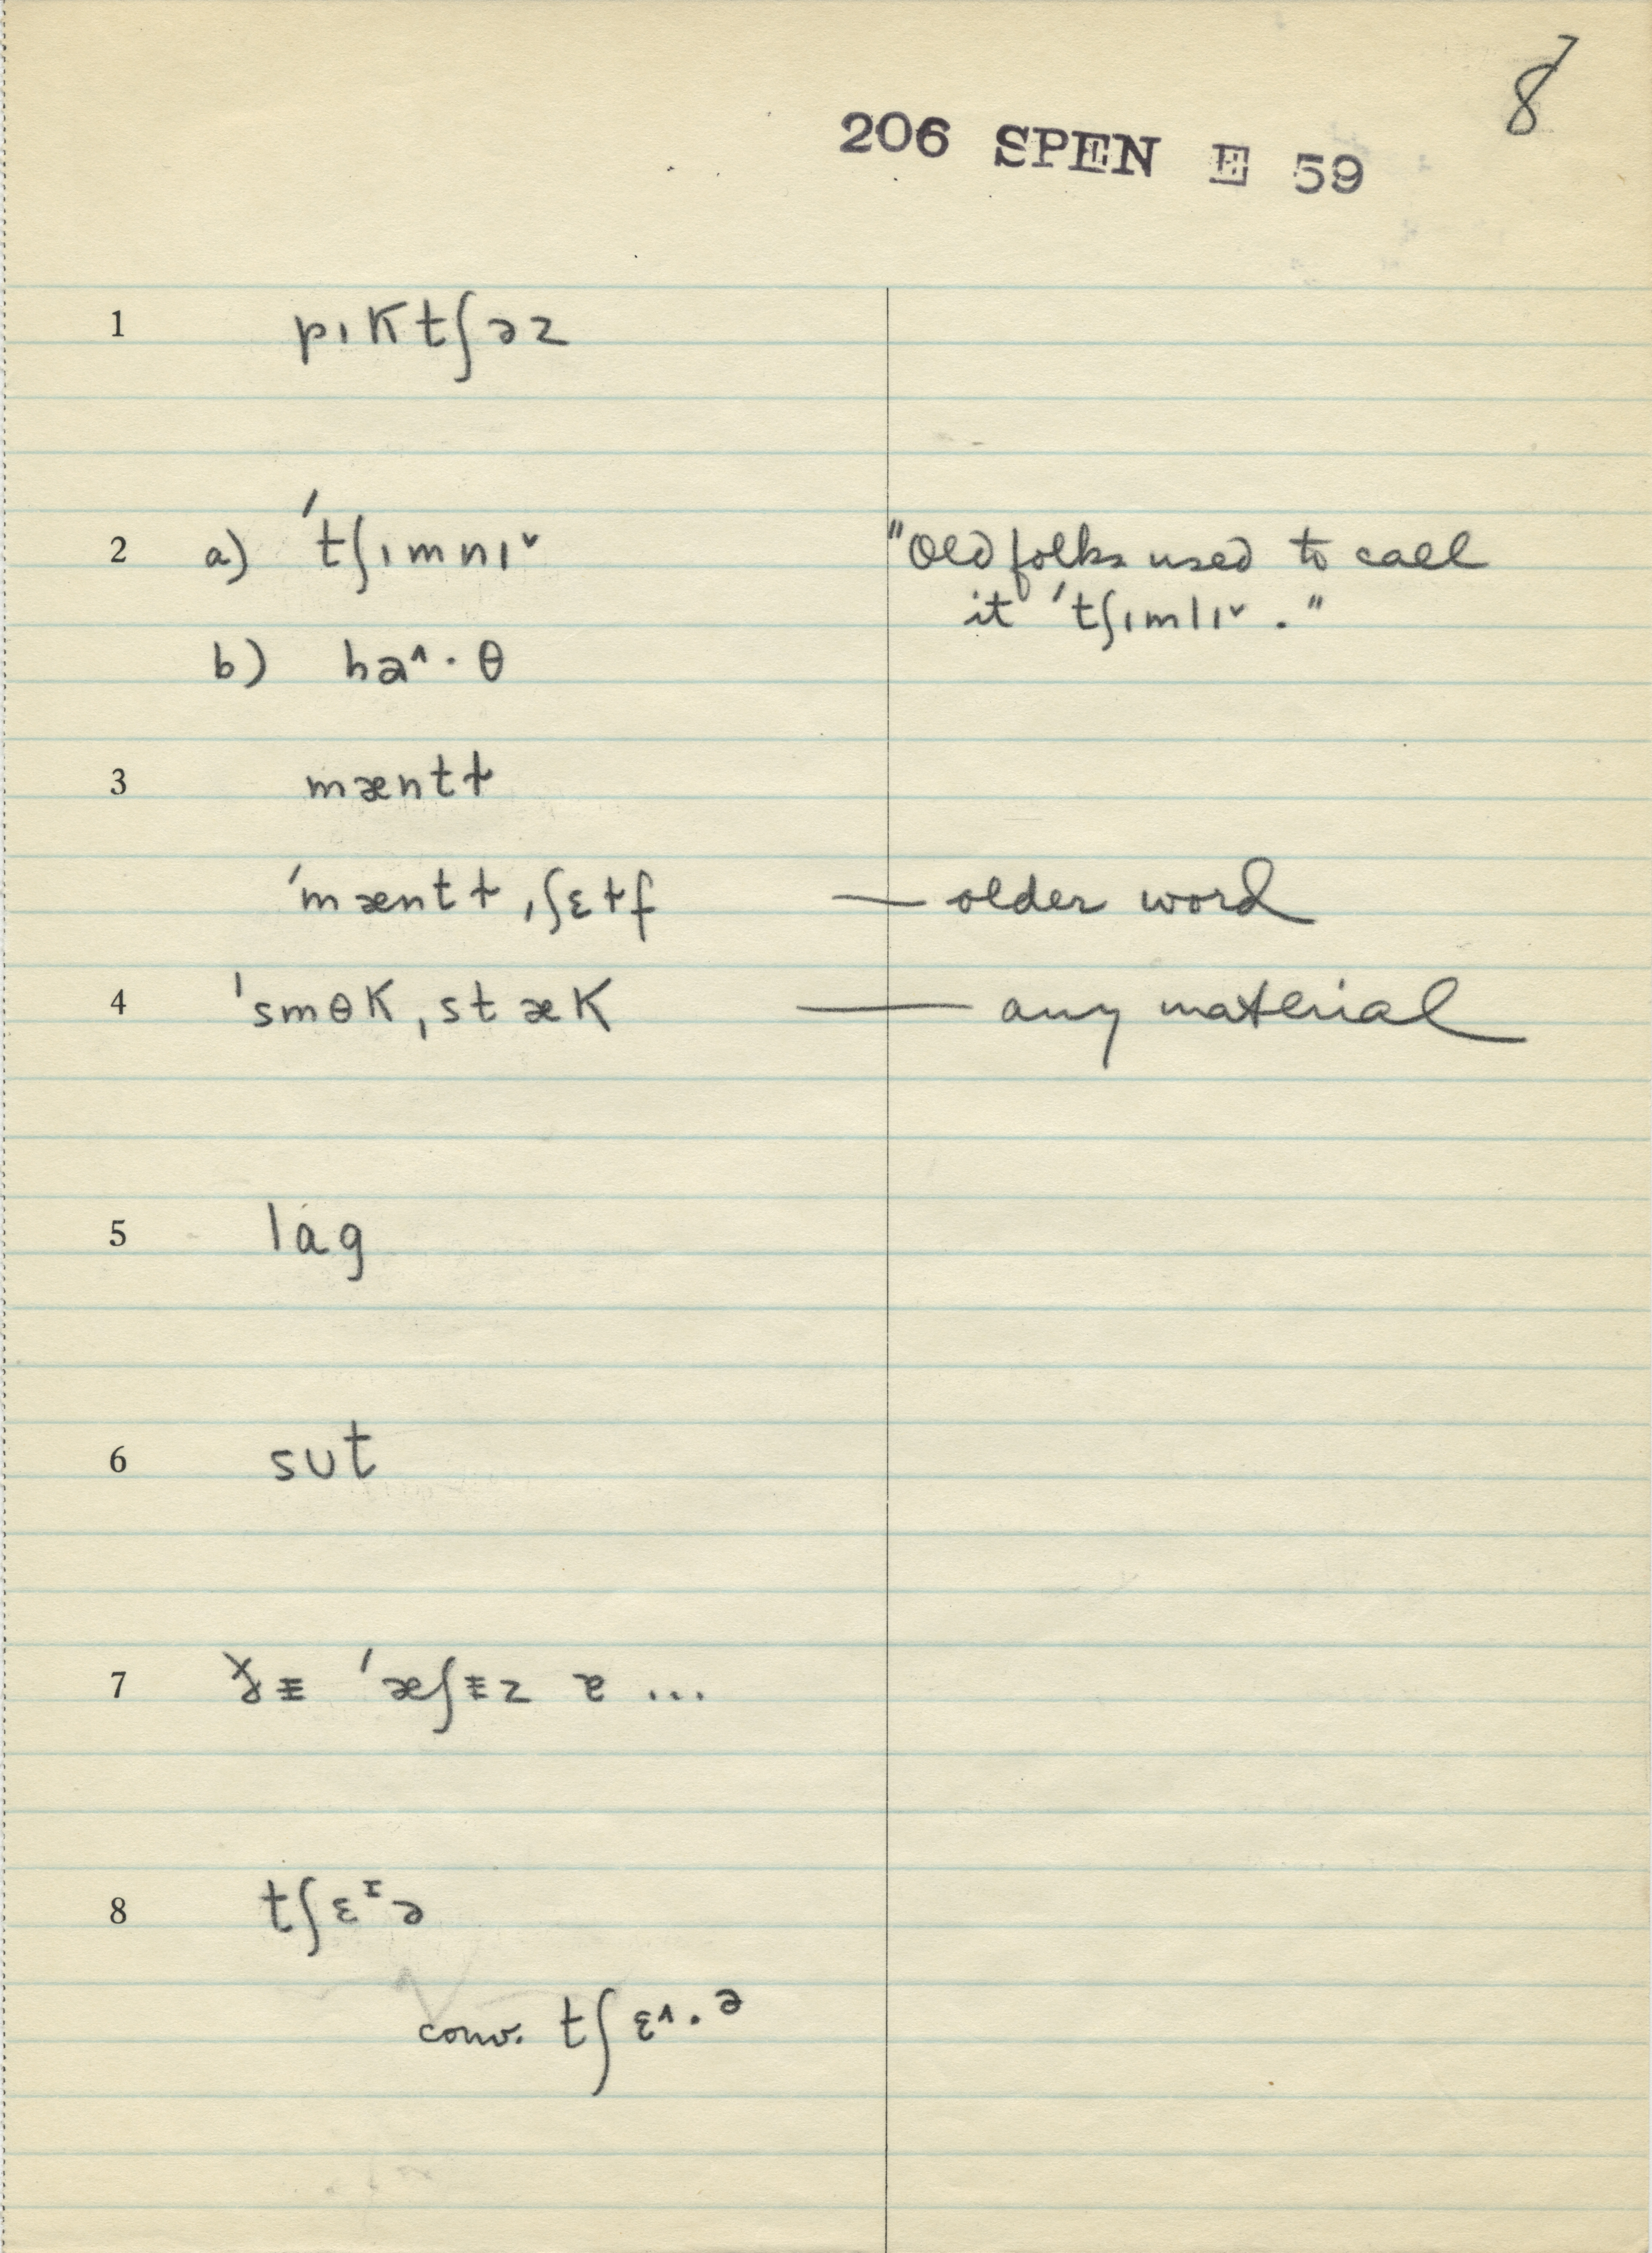 8
206 SPEN E 59
1 pıKtʃəz
2 a) 'tʃımnıˇ "Old folks used to call
it 'tʃımlıˇ."
b) haˆ·θ
3 mæntɫ
'mæntɫ ˌʃɛɫf — older word
4 'smɵK ˌstæK — any material
5 lɑg
6 sut
7 'æʃɪz ɐ ...
8 tʃɛᶦə
conv. tʃɛˆ·ᵊ